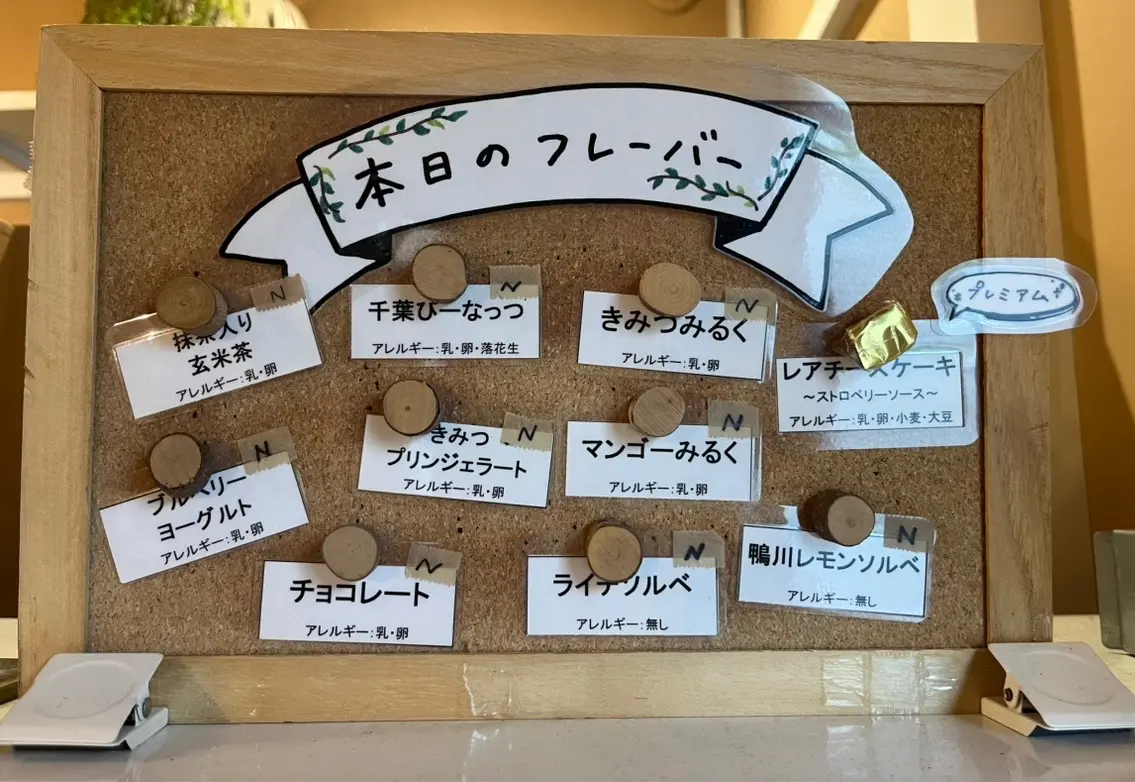 本日のフレーバー
抹茶入り
玄米茶
アレルギー:乳・卵
N
千葉ぴーなっつ
アレルギー:乳・卵・落花生
N
きみつみるく
アレルギー:乳・卵
N
プレミアム
レアチーズケーキ
～ストロベリーソース～
アレルギー:乳・卵・小麦・大豆
ブルーベリー
ヨーグルト
アレルギー:乳・卵
N
きみつ
プリンジェラート
アレルギー:乳・卵
N
マンゴーみるく
アレルギー:乳・卵
N
チョコレート
アレルギー:乳・卵
N
ライチソルベ
アレルギー:無し
N
鴨川レモンソルベ
アレルギー:無し
N